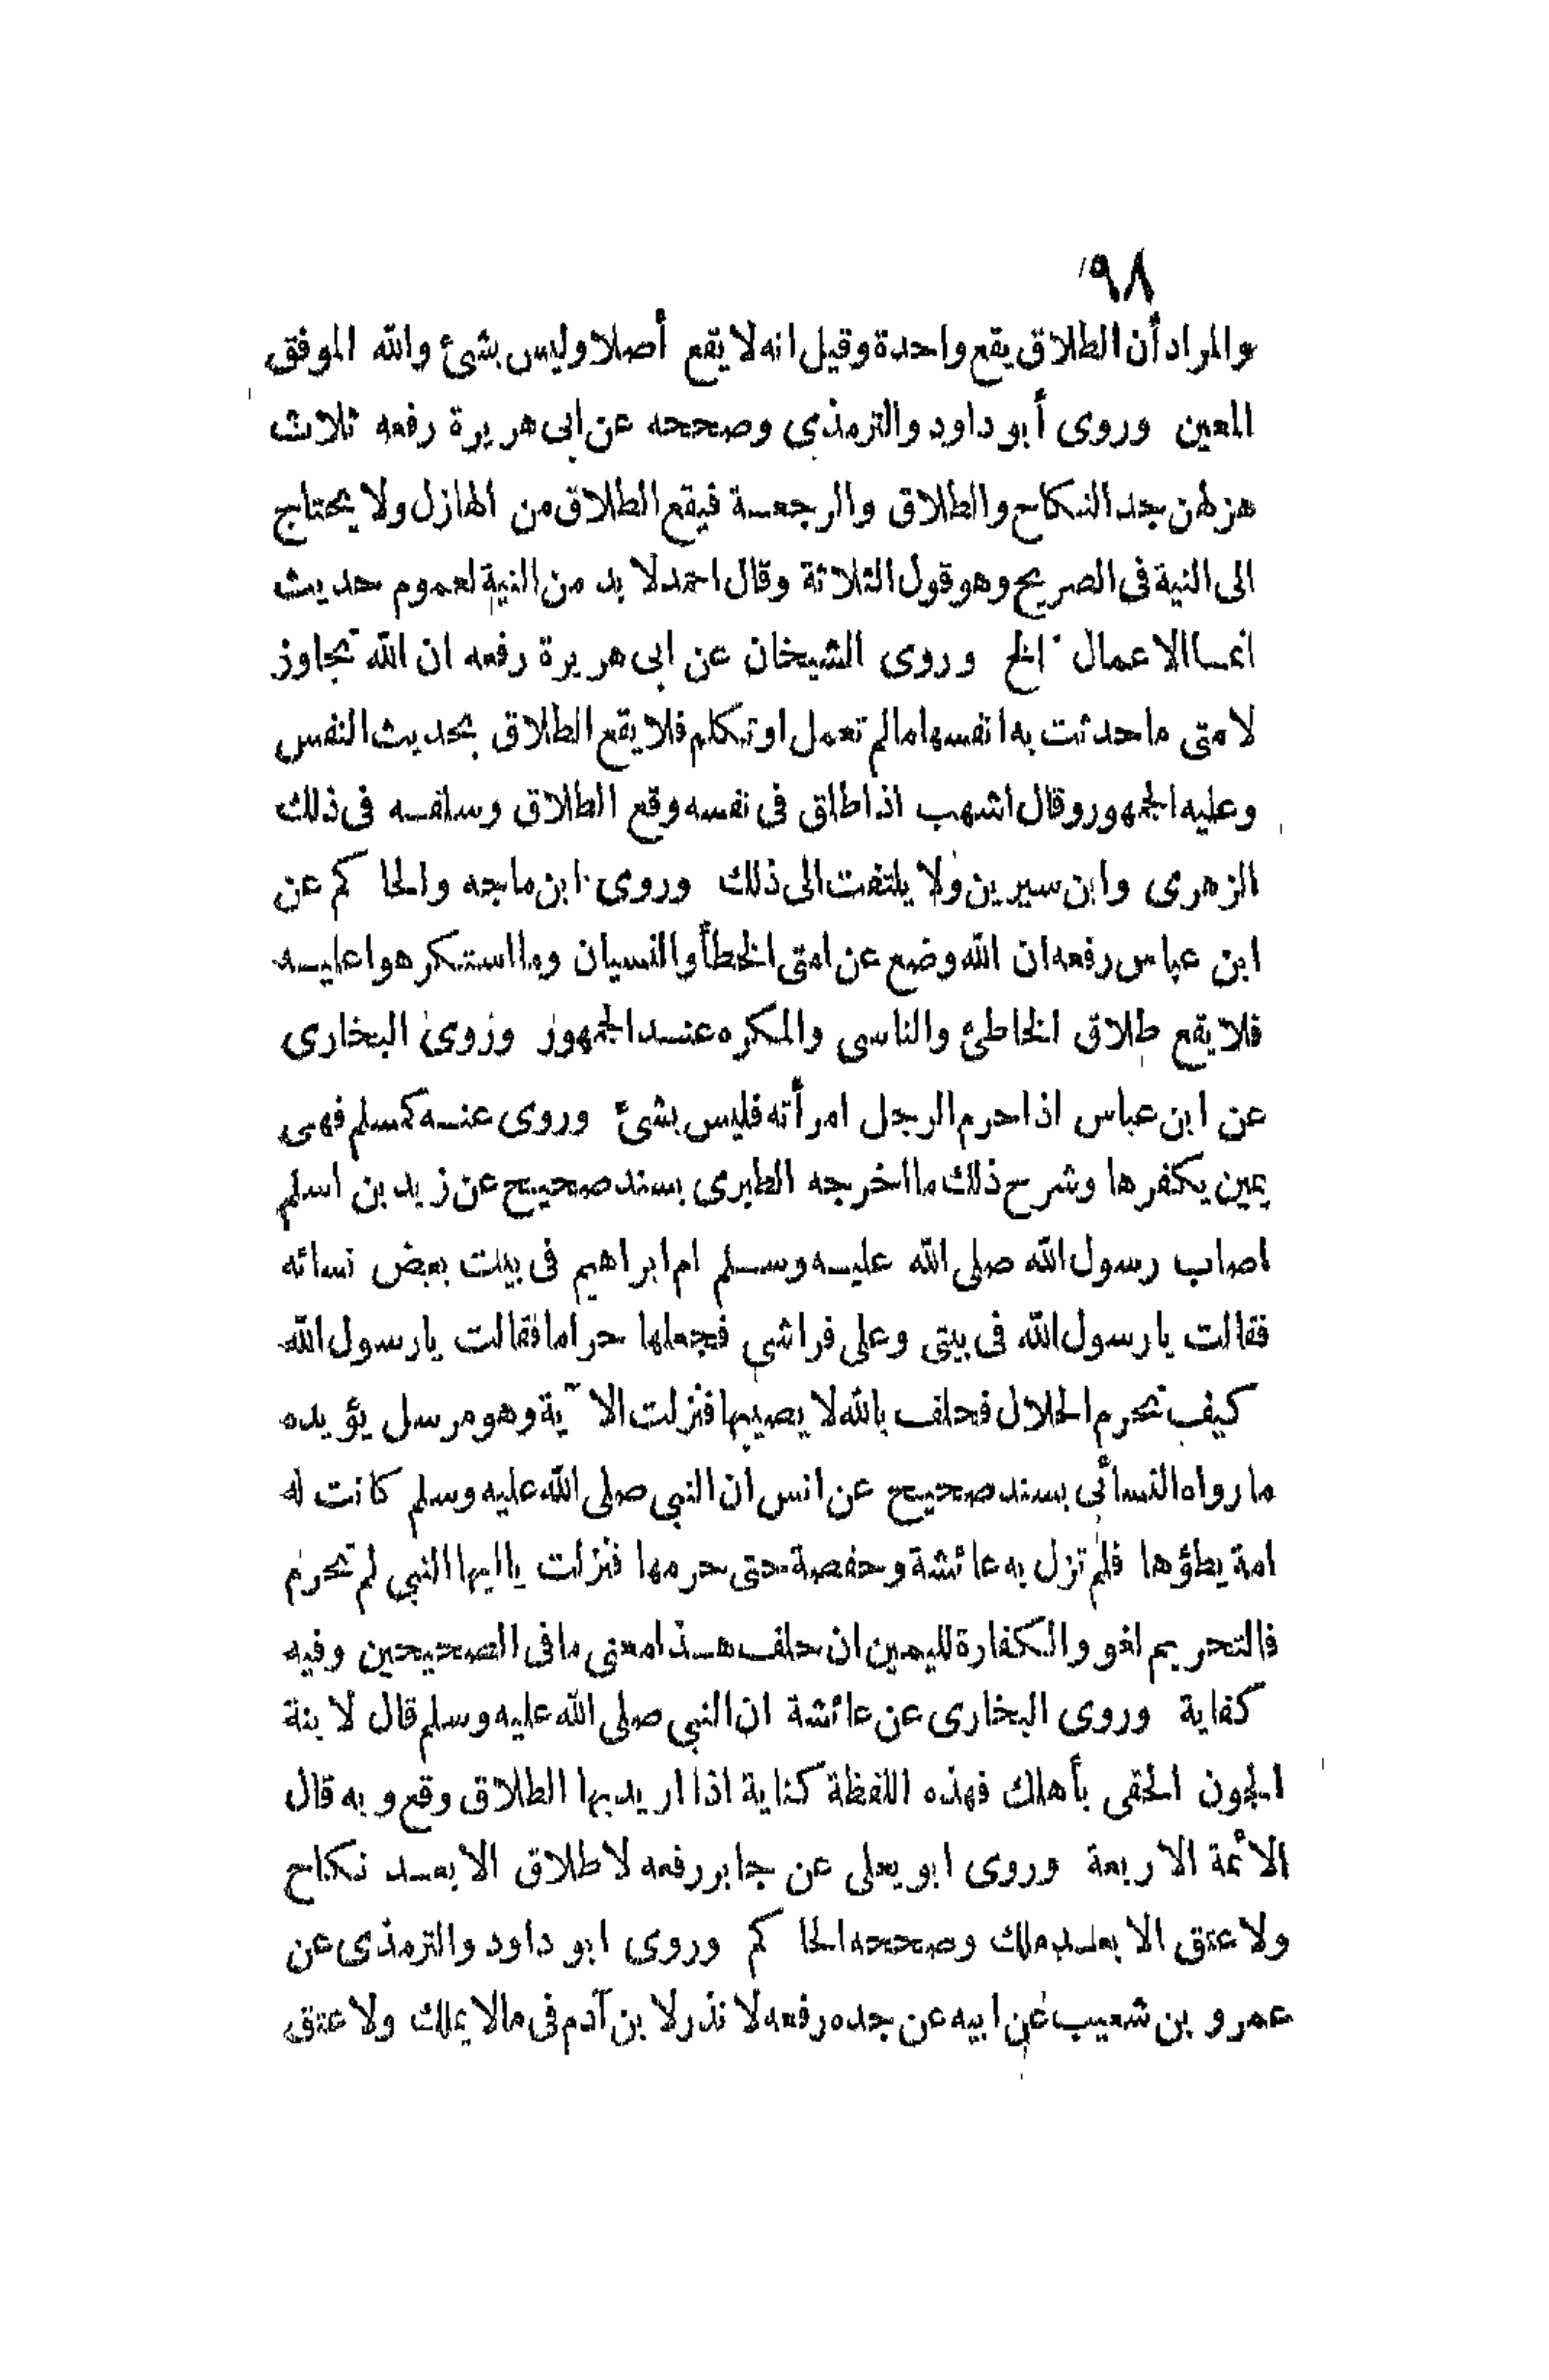 ٩٨
والمراد أن الطلاق يقع واحدة وقيل انه لا يقع أصلا وليس بشئ والله الموفق
المعين وروى أبو داود والترمذي وصححه عن ابى هريرة رفعه ثلاث
هزلهن جد النكاح والطلاق والرجعة فيقع الطلاق من الهازل ولا يحتاج
الى النية فى الصريح وهو قول الثلاثة وقال احمد لا بد من النية لعموم حديث
انما الاعمال الخ وروى الشيخان عن ابى هريرة رفعه ان الله تجاوز
لامتى ما حدثت به انفسها ما لم تعمل او تكلم فلا يقع الطلاق بحديث النفس
وعليه الجمهور وقال اشهب اذا طلق فى نفسه وقع الطلاق وسلفه فى ذلك
الزهرى وابن سيرين ولا يلتفت الى ذلك وروى ابن ماجه والحاكم عن
ابن عباس رفعه ان الله وضع عن امتى الخطأ والنسيان وما استكرهوا عليه
فلا يقع طلاق الخاطئ والناسى والمكره عند الجمهور وروى البخارى
عن ابن عباس اذا حرم الرجل امرأته فليس بشئ وروى عنه كمسلم فهى
يمين يكفرها وشرح ذلك ما اخرجه الطبرى بسند صحيح عن زيد بن اسلم
اصاب رسول الله صلى الله عليه وسلم ام ابراهيم فى بيت بعض نسائه
فقالت يا رسول الله فى بيتى وعلى فراشى فجعلها حراما فقالت يا رسول الله
كيف تحرم الحلال فحلف بالله لا يصيبها فنزلت الآية وهو مرسل يؤيده
ما رواه النسأئى بسند صحيح عن انس ان النبي صلى الله عليه وسلم كانت له
امة يطؤها فلم تزل به عائشة وحفصة حتى حرمها فنزلت يا ايها النبي لم تحرم
فالتحريم لغو والكفارة لليمين ان حلف هذا معنى ما فى الصحيحين وفيه
كفاية وروى البخارى عن عائشة ان النبي صلى الله عليه وسلم قال لابنة
الجون الحقى بأهلك فهذه اللفظة كناية اذا اريد بها الطلاق وقع وبه قال
الأئمة الاربعة وروى ابو يعلى عن جابر رفعه لا طلاق الا بعد نكاح
ولا عتق الا بعد ملك وصححه الحاكم وروى ابو داود والترمذى عن
عمرو بن شعيب عن ابيه عن جده رفعه لا نذر لابن آدم فى ما لا يملك ولا عتق